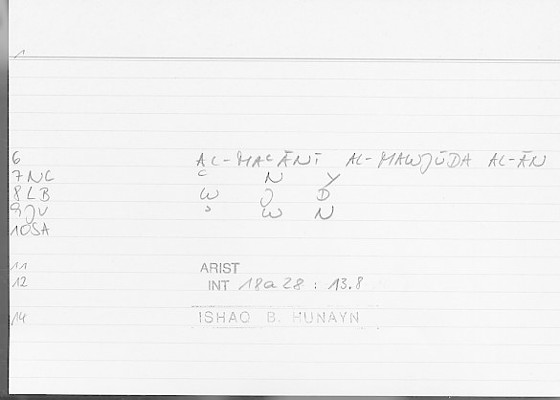 1
6 AL-MAʿĀNĪ AL-MAWJŪDA AL-ĀN
7 NC ʿ N Y
8 LB W J D
9 JV ʾ W N
10 SA
11 ARIST
12 INT 18a28 : 13.8
14 ISHAQ B. HUNAYN